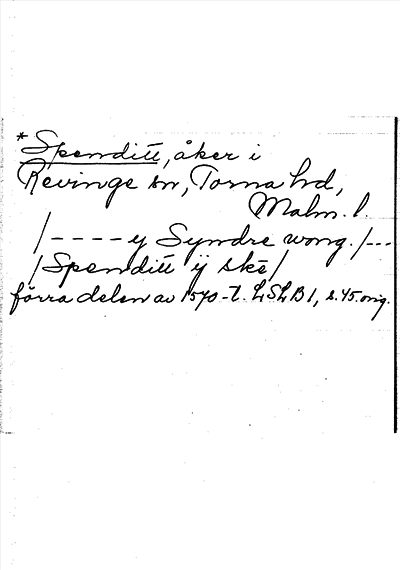 *Spenditt, åker i
Revinge sn, Torna hd,
Malm. l.
/----y Syndre wong./---
/Spenditt ij skē/
förra delen av 1570-t. LSLB 1, s. 45. orig.